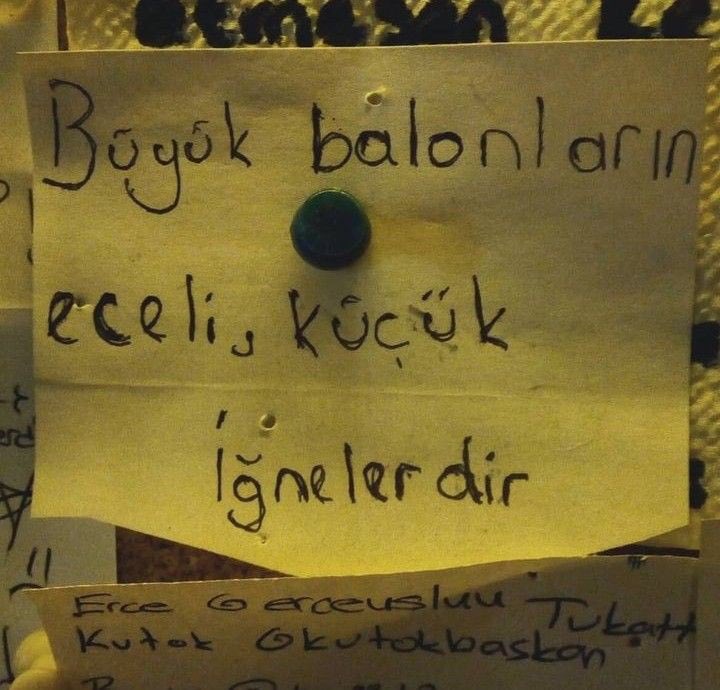 etmesen
Büyük balonların
eceli, küçük
İğnelerdir
Erce @erceusluu
Kutok @kutokbaskan